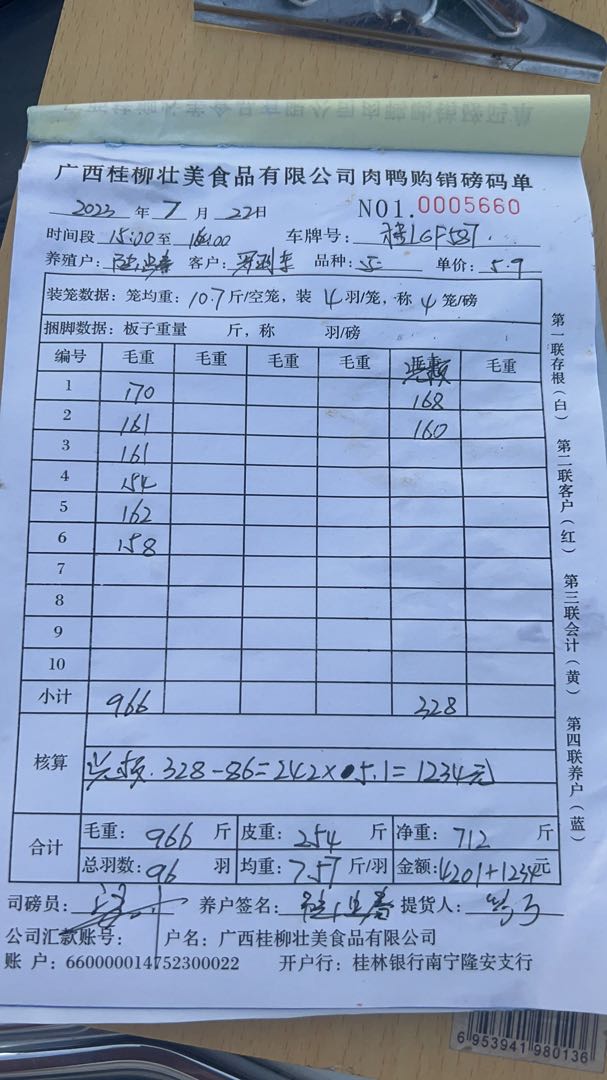 广西桂柳壮美食品有限公司肉鸭购销磅码单
2023 年 7 月 22日 NO1.0005660
时间段 15:00 至 16:00 车牌号:
养殖户: 客户: 品种: 单价: 5.9
装笼数据: 笼均重: 10.7 斤/空笼, 装 4 羽/笼, 称 4 笼/磅
捆脚数据: 板子重量 斤, 称 羽/磅
编号 毛重 毛重 毛重 毛重 毛重
1 170 168
2 161 160
3 161
4 154
5 162
6 158
7
8
9
10
小计 966 328
核算 328-86=242×5.1=1234元
合计 毛重: 966 斤 皮重: 254 斤 净重: 712 斤
总羽数: 96 羽 均重: 7.57 斤/羽 金额: 4201+1234元
司磅员: 养户签名: 提货人:
公司汇款账号: 户名: 广西桂柳壮美食品有限公司
账 户: 660000014752300022 开户行: 桂林银行南宁隆安支行
第一联存根(白) 第二联客户(红) 第三联会计(黄) 第四联养户(蓝)
6 953941 980136